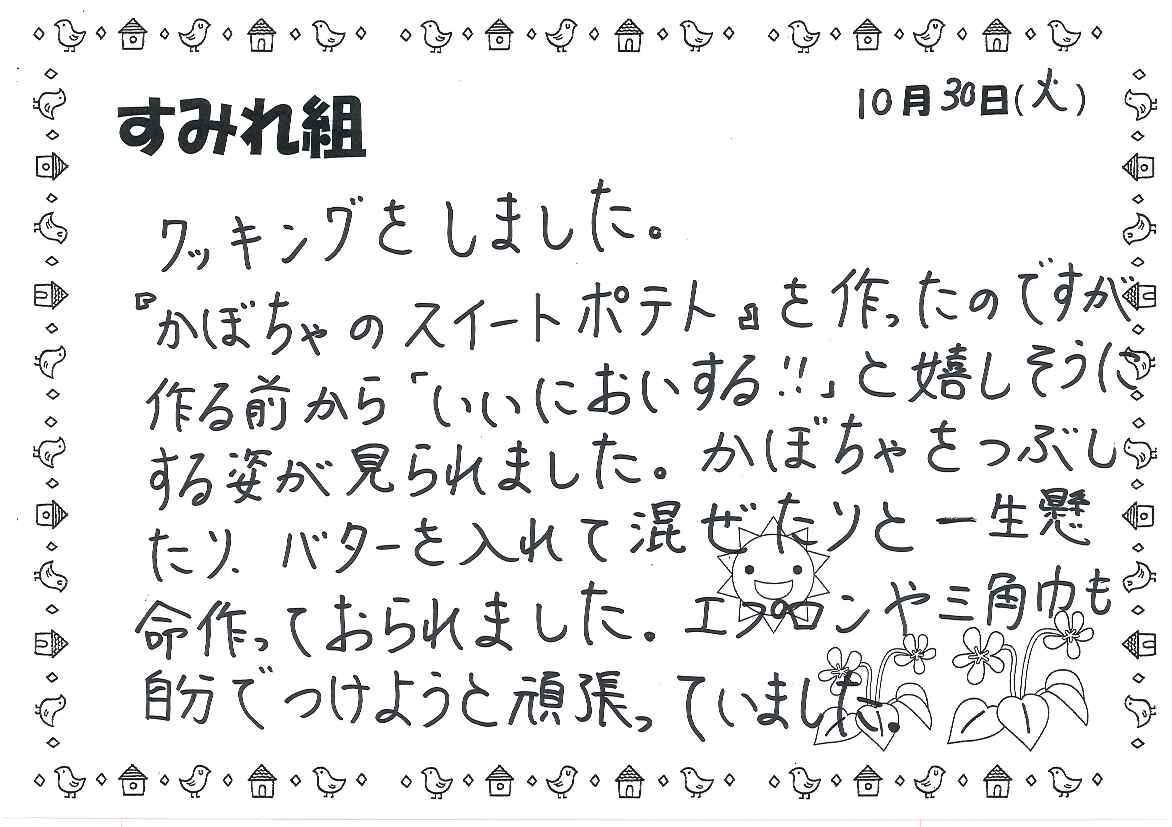 10月30日(火)
すみれ組
クッキングをしました。
『かぼちゃのスイートポテト』を作ったのですが
作る前から「いいにおいする!!」と嬉しそうに
する姿が見られました。かぼちゃをつぶし
たり、バターを入れて混ぜたりと一生懸
命作っておられました。エプロンや三角巾も
自分でつけようと頑張っていました。